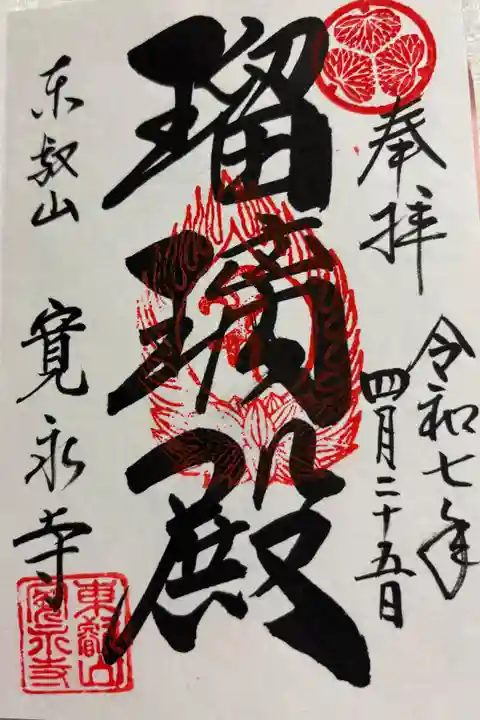 奉拝
令和七年
四月二十五日
瑠璃殿
東叡山 寛永寺
東叡山
寛永寺